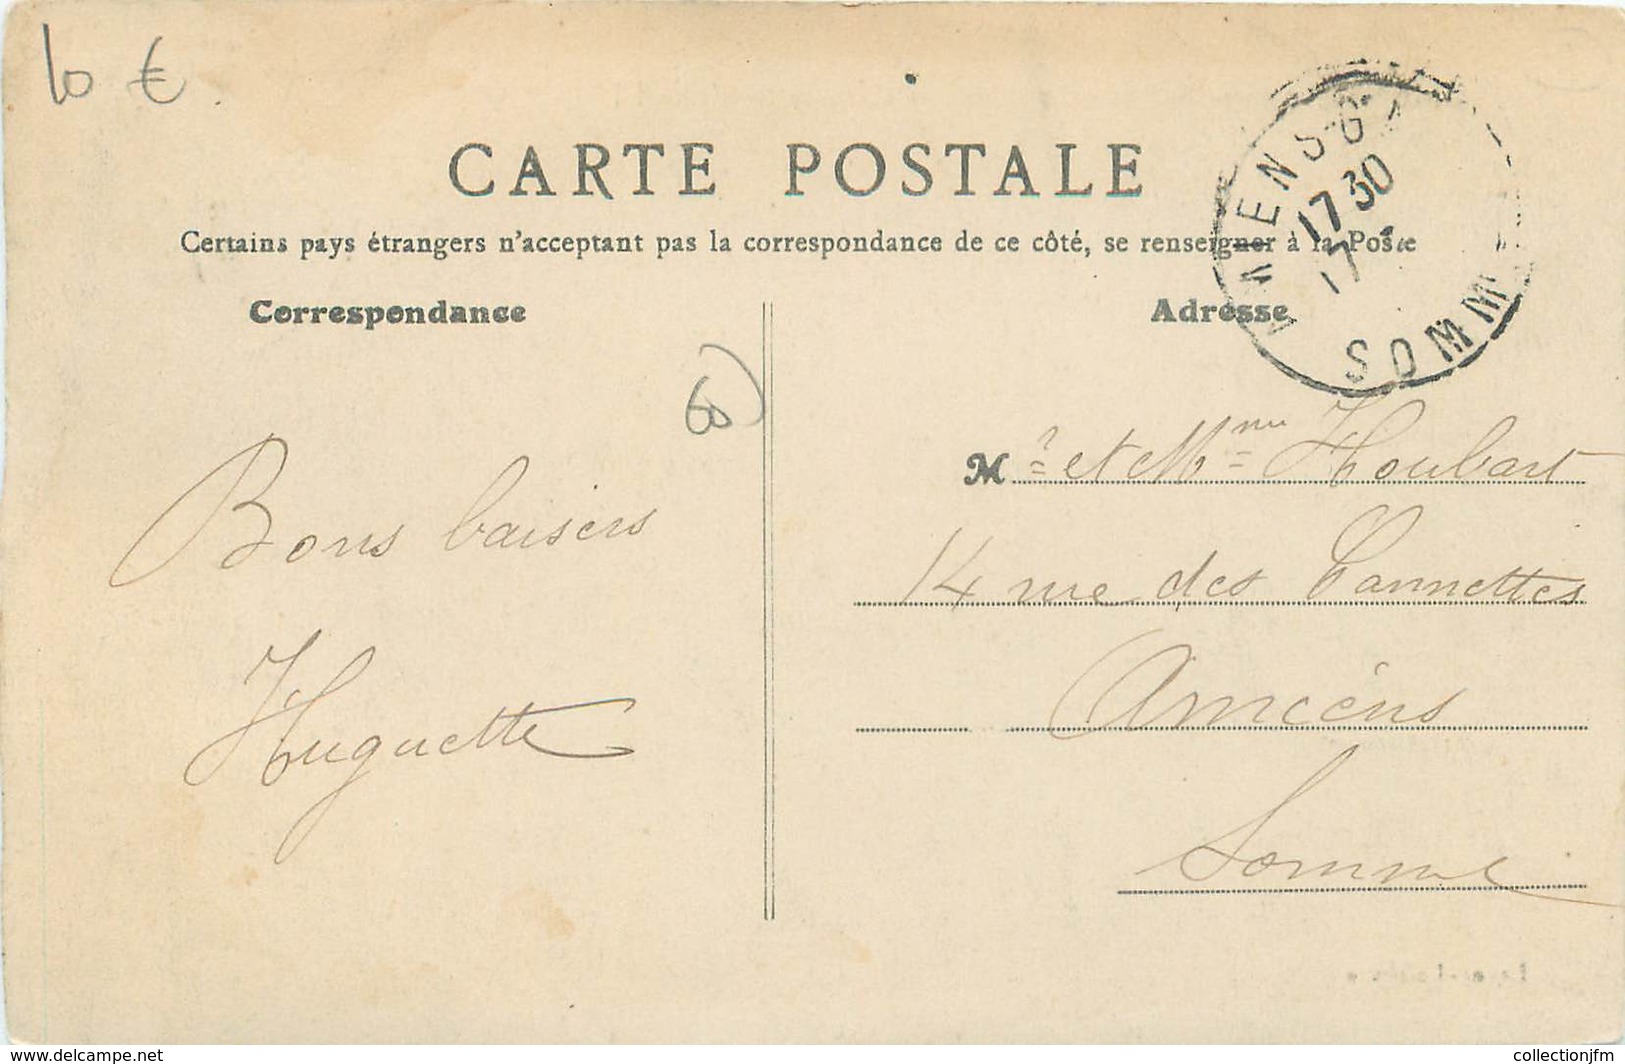 10 €
CARTE POSTALE
Certains pays étrangers n'acceptant pas la correspondance de ce côté, se renseigner à la Poste
Correspondance
Adresse
AMIENS GA
17 30
17
SOMME
60
M r et Mme Houbart
14 rue des Cannettes
Amiens
Somme
Bons baisers
Huguette
www.delcampe.net
collectionjfm